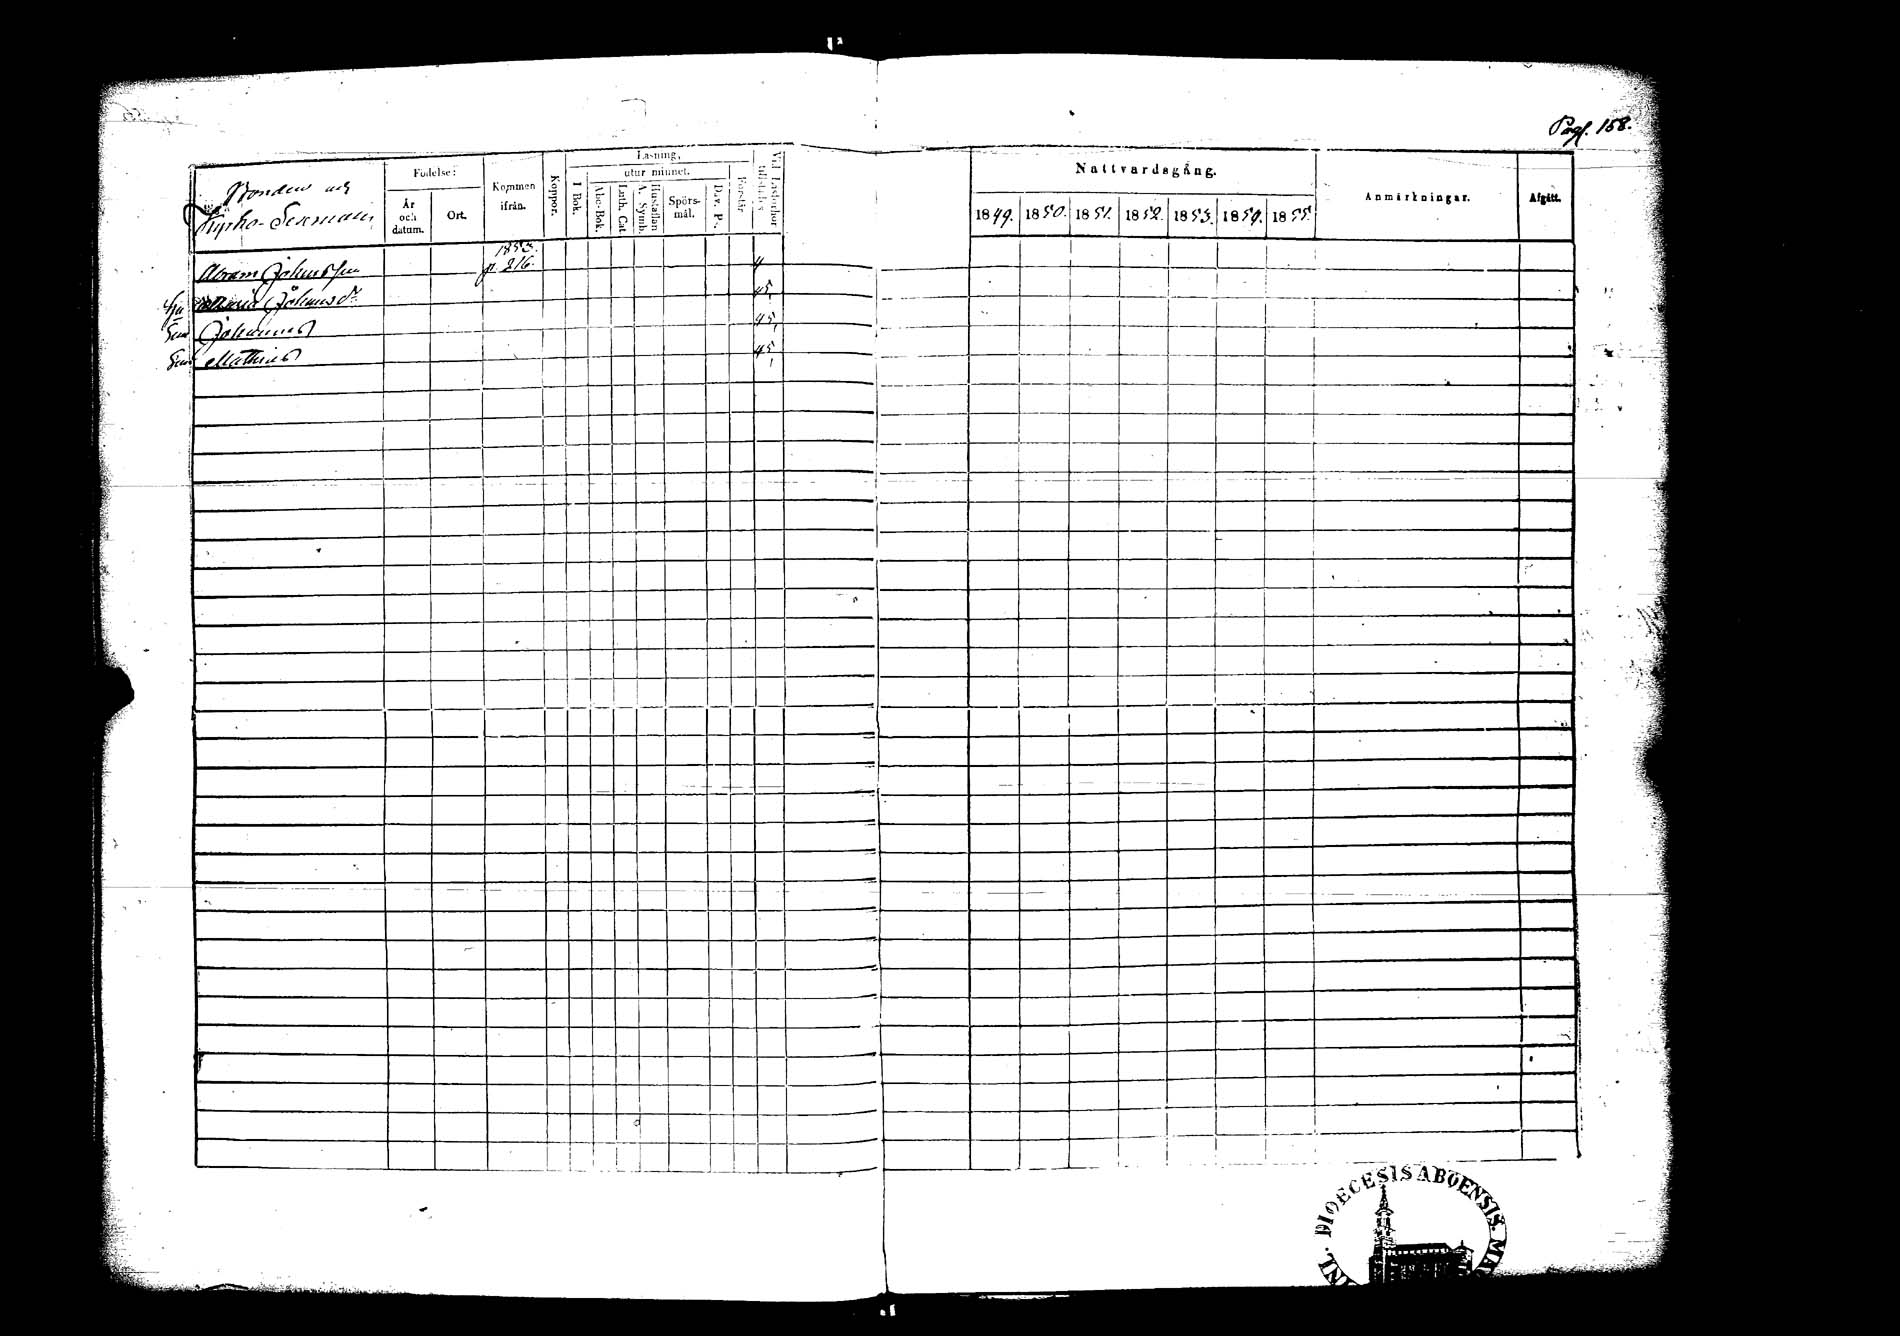 Pag. 158.
Bonden och
Kyrko-Sexman,
Födelse:
År
och
datum.
Ort.
Kommen
ifrån.
Koppor.
Läsning,
utur minnet.
I Bok.
Abc-Bok.
Luth. Cat
Hustaflan
A. Symb.
Spörs-
mål.
Dav. Ps.
Förstår
Vid Läsförhör
Nattvardsgång.
1849. 1850. 1851. 1852. 1853. 1854. 1855.
Anmärkningar.
Afgått.
1853.
Abram Johansson p. 216. 4
hu Maria Johansdr 45,
Son Johannes 45,
Son Mathias 45,
DIOECESIS ABOENSIS.